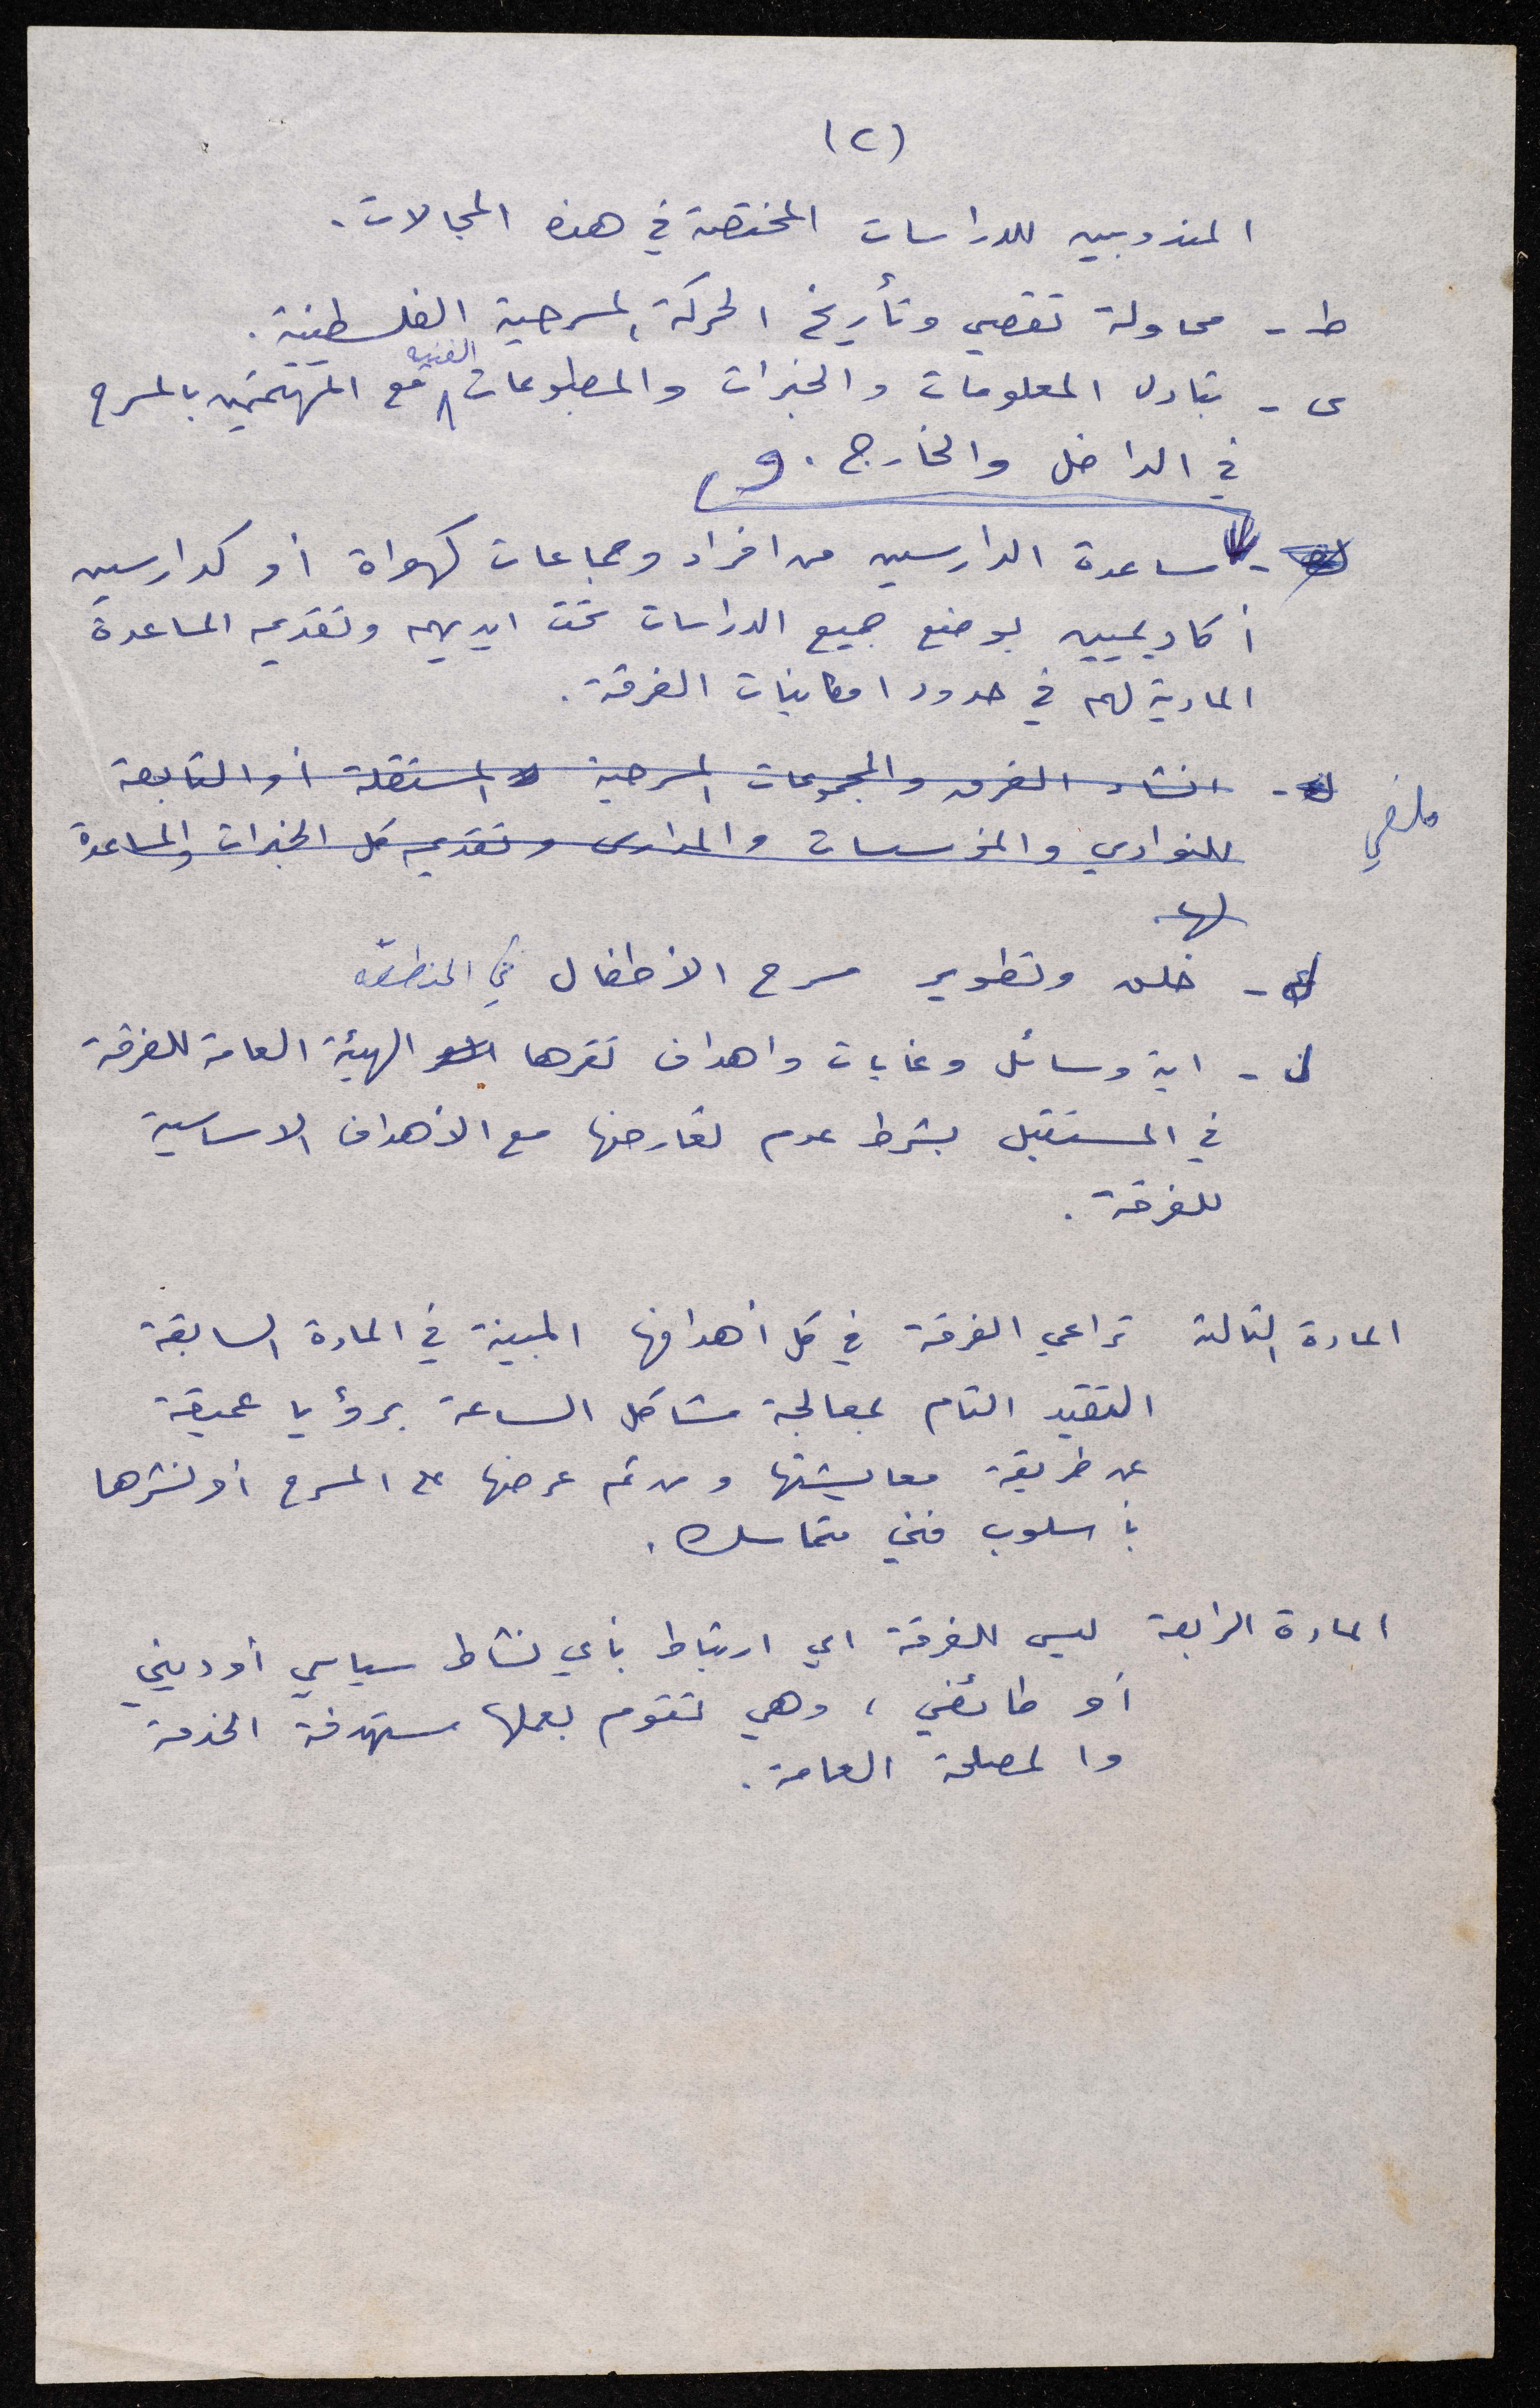 (٢)
المندوبين للدراسات المختصة في هذه المجالات.
ط - محاولة تقصي وتأريخ الحركة المسرحية الفلسطينية.
ى - تبادل المعلومات والخبرات والمطبوعات الفنيه مع المهتمين بالمسرح
في الداخل والخارج. و
مساعدة الدارسين من افراد وجماعات كهواة أو كدارسين
أكاديميين بوضع جميع الدراسات تحت ايديهم وتقديم المساعدة
المادية لهم في حدود امكانيات الفرقة.
ملغي
انشاء الفرق والمجموعات المسرحية المستقلة أو التابعة
للنوادي والمؤسسات والمدارس وتقديم كل الخبرات والمساعدة
لها.
ك - خلق وتطوير مسرح الأطفال في المنطقة
ل - اية وسائل وغايات واهداف تقرها الهيئة العامة للفرقة
في المستقبل بشرط عدم تعارضها مع الأهداف الاساسية
للفرقة.
المادة الثالثة تراعي الفرقة في كل أهدافها المبينة في المادة السابقة
التقيد التام بمعالجة مشاكل الساعة برؤيا عميقة
عن طريقة معايشتها ومن ثم عرضها على المسرح أو نشرها
بأسلوب فني متماسك.
المادة الرابعة ليس للفرقة اي ارتباط بأي نشاط سياسي أو ديني
أو طائفي ، وهي تقوم بعملها مستهدفة الخدمة
والمصلحة العامة.